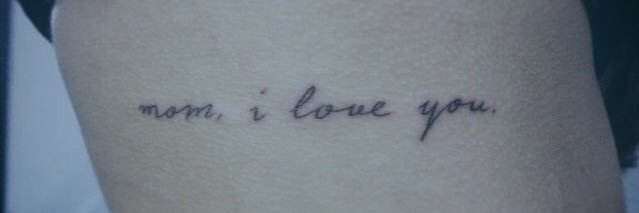 mom, i love you.